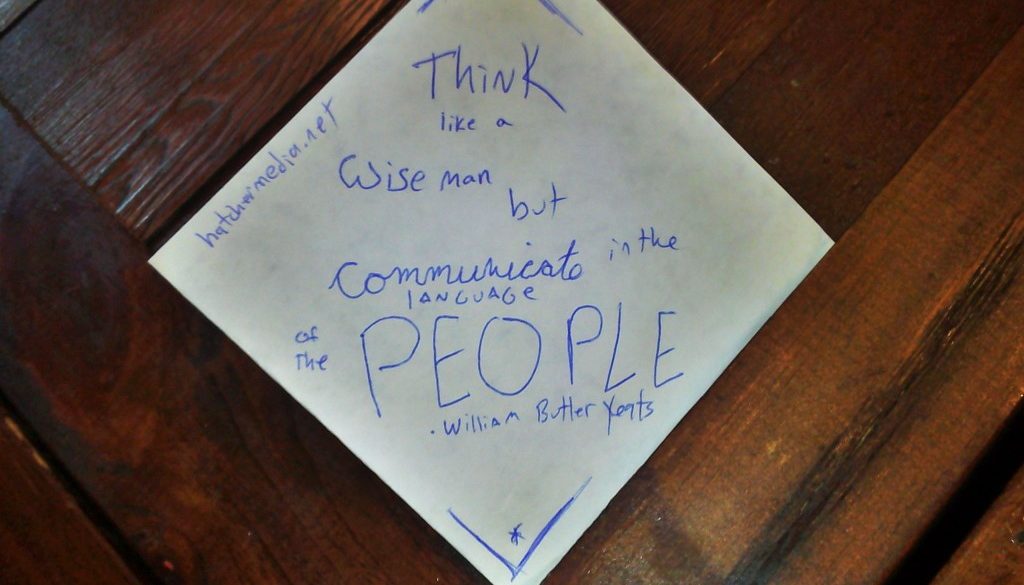 Think
like a
Wise man
but
Communicate in the
LANGUAGE
of the
PEOPLE
. William Butler Yeats
hatchermedia.net
*